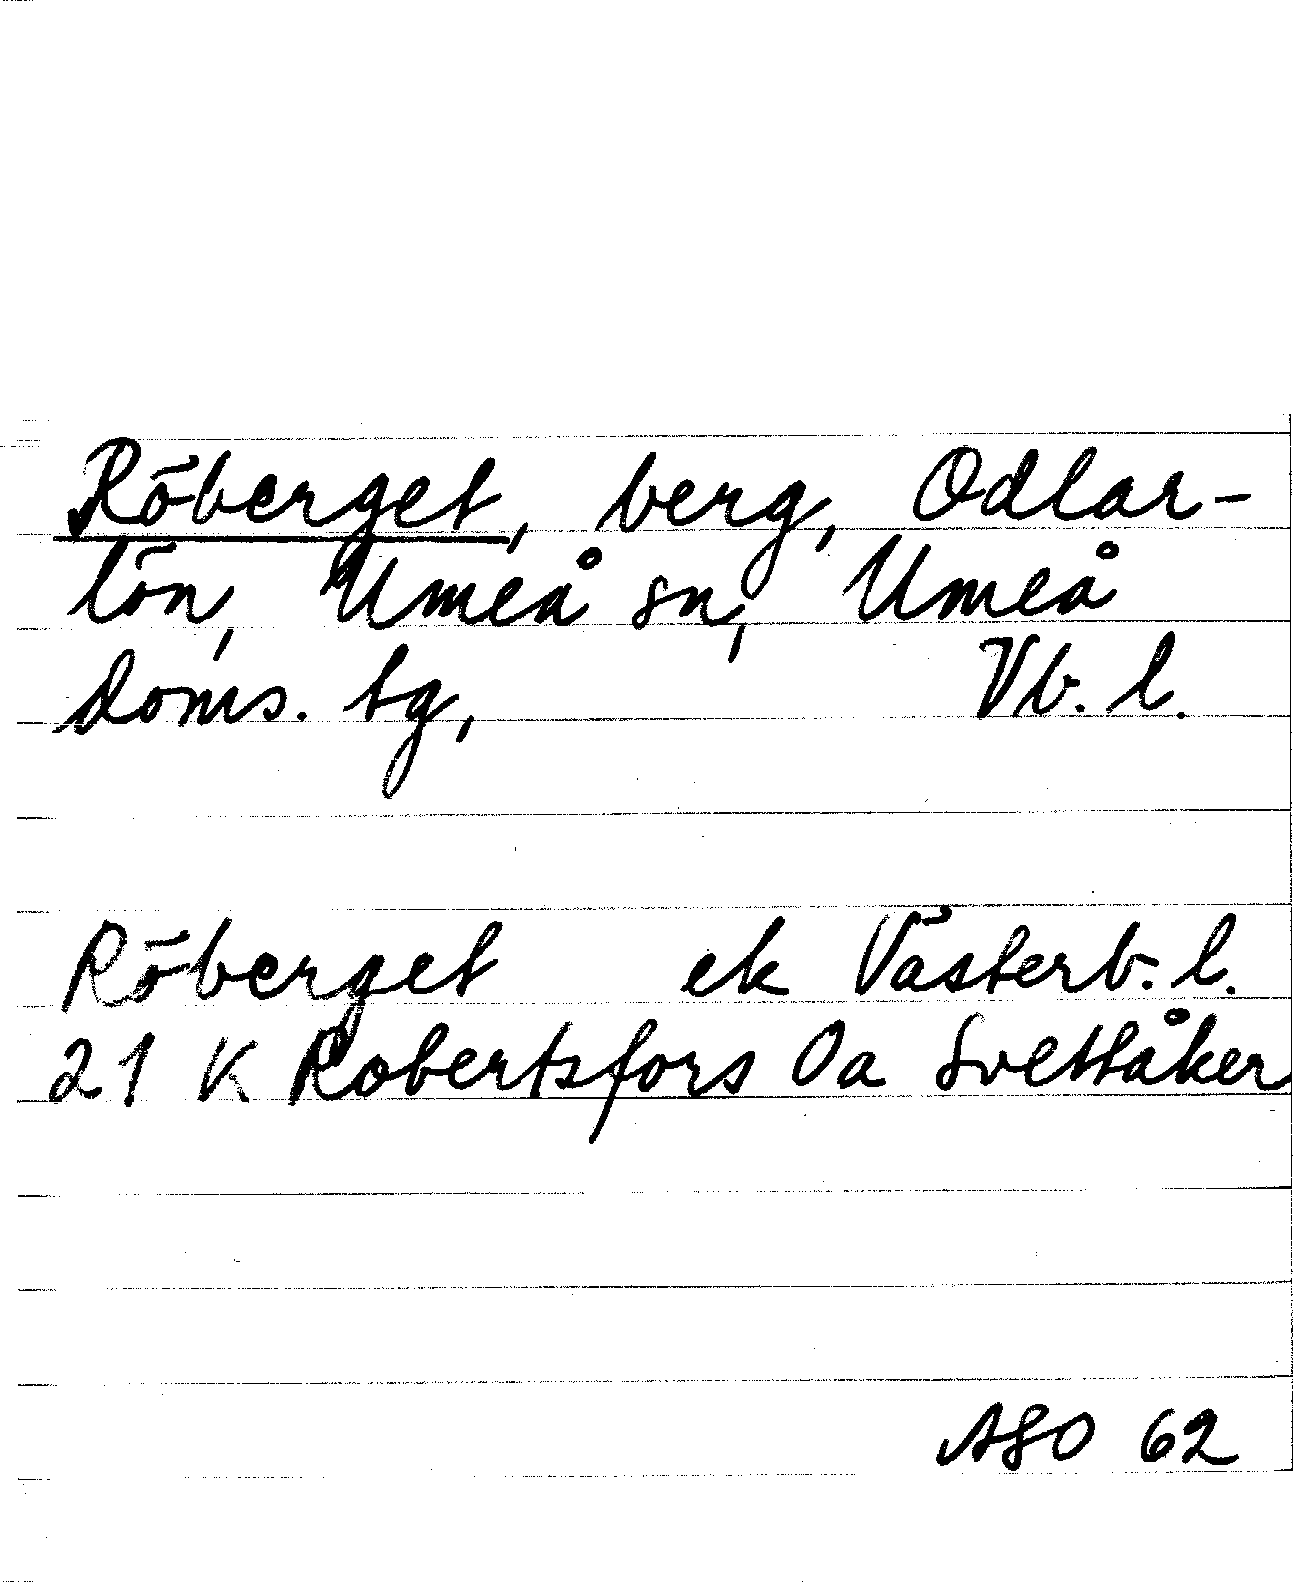 Röberget, berg, Odlar-
lön, Umeå sn, Umeå
doms. tg, Vb. l.
Röberget ek Västerb. l.
21 K Robertsfors Oa Svettåker
ASO 62